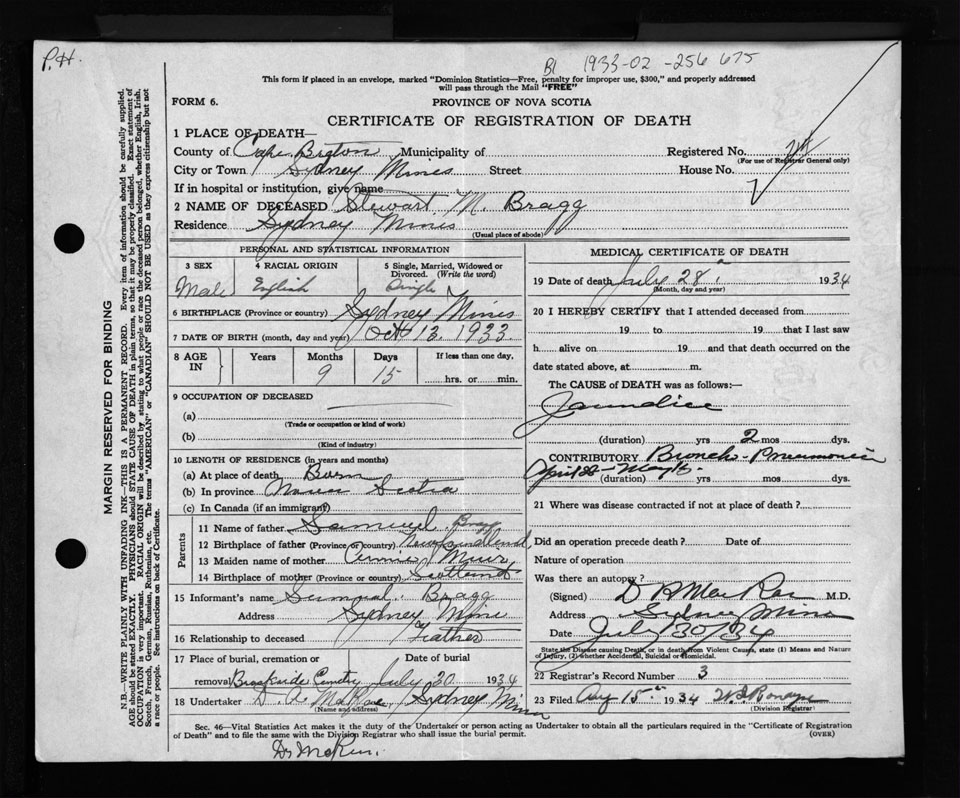 P.H.
Bl 1933-02-256 675
This form if placed in an envelope, marked "Dominion Statistics—Free, penalty for improper use, $300," and properly addressed
will pass through the Mail "FREE"
FORM 6. PROVINCE OF NOVA SCOTIA
CERTIFICATE OF REGISTRATION OF DEATH
1 PLACE OF DEATH—
County of Cape Breton Municipality of Registered No.
(For use of Registrar General only)
City or Town Sydney Mines Street House No.
If in hospital or institution, give name
2 NAME OF DECEASED Stewart M. Bragg
Residence Sydney Mines
(Usual place of abode)
PERSONAL AND STATISTICAL INFORMATION
3 SEX Male
4 RACIAL ORIGIN English
5 Single, Married, Widowed or Divorced. (Write the word) Single
6 BIRTHPLACE (Province or country) Sydney Mines
7 DATE OF BIRTH (month, day and year) Oct 13. 1933.
8 AGE IN Years Months 9 Days 15 If less than one day, hrs. or min.
9 OCCUPATION OF DECEASED
(a)
(Trade or occupation or kind of work)
(b)
(Kind of industry)
10 LENGTH OF RESIDENCE (in years and months)
(a) At place of death Born
(b) In province Nova Scotia
(c) In Canada (if an immigrant)
Parents
11 Name of father Samuel Bragg
12 Birthplace of father (Province or country) Newfoundland
13 Maiden name of mother Annie Muir
14 Birthplace of mother (Province or country) Scotland
15 Informant's name Samual Bragg
Address Sydney Mines
16 Relationship to deceased Father
17 Place of burial, cremation or Date of burial
removal Cemetry July 30 1934
18 Undertaker D. A. Sydney Mines
(Name and address)
MEDICAL CERTIFICATE OF DEATH
19 Date of death July 28 1934
(Month, day and year)
20 I HEREBY CERTIFY that I attended deceased from
19 to 19 that I last saw
h alive on 19 and that death occurred on the
date stated above, at m.
The CAUSE of DEATH was as follows:—
Jaundice
(duration) yrs 2 mos dys.
CONTRIBUTORY Broncho-Pneumonia
April 22 - May 16.
(duration) yrs mos dys.
21 Where was disease contracted if not at place of death?
Did an operation precede death? Date of
Nature of operation
Was there an autopsy?
(Signed) D R MacRae M.D.
Address Sydney Mines
Date July 30/34
State the Disease causing Death, or in death from Violent Causes, state (1) Means and Nature
of Injury, (2) whether Accidental, Suicidal or Homicidal.
22 Registrar's Record Number 3
23 Filed Aug 15 1934
(Division Registrar)
Sec. 46—Vital Statistics Act makes it the duty of the Undertaker or person acting as Undertaker to obtain all the particulars required in the "Certificate of Registration
of Death" and to file the same with the Division Registrar who shall issue the burial permit. (OVER)
MARGIN RESERVED FOR BINDING
N.B.—WRITE PLAINLY WITH UNFADING INK—THIS IS A PERMANENT RECORD. Every item of information should be carefully supplied.
AGE should be stated EXACTLY. PHYSICIANS should STATE CAUSE OF DEATH in plain terms, so that it may be properly classified. Exact statement of
OCCUPATION is very important. RACIAL ORIGIN will be described by stating to what people or race the deceased person belonged, whether English, Irish,
Scotch, French, German, Russian, Ruthenian, etc. The terms "AMERICAN" or "CANADIAN" SHOULD NOT BE USED as they express citizenship but not
a race or people. See instructions on back of Certificate.